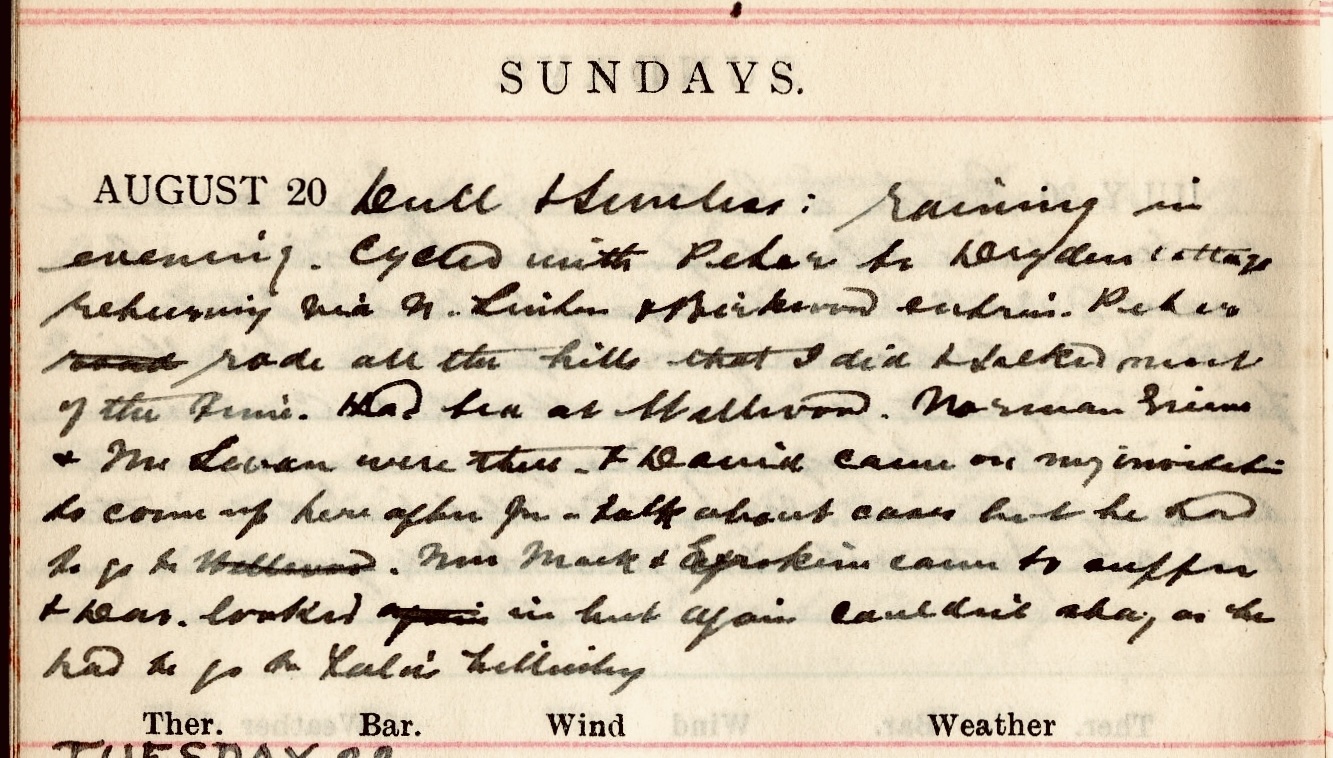 SUNDAYS.
AUGUST 20 Dull & Sunless: raining in
evening. Cycled with Peter to Dryden Cottage
returning via N. Linton & Birkwood. Peter
road rode all the hills that I did & talked most
of the time. Had tea at Wellwood. Norman
& Mr Levan were there. & David came on my
to come up here after for a talk about cases but he had
to go to Wellwood. Mrs Mack & came to supper
& Dav. looked again in but again couldn't stay as he
had to go to
Ther. Bar. Wind Weather
TUESDAY 22